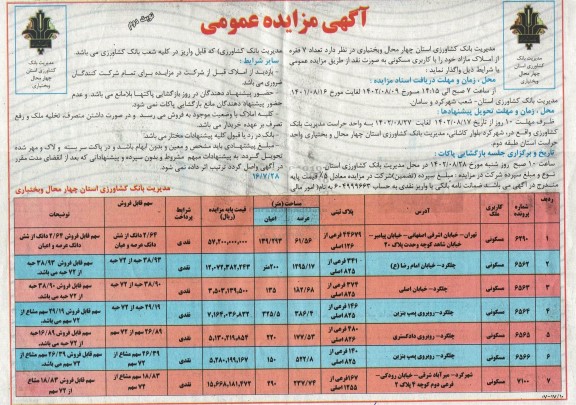 آگهی مزایده عمومی
نوبت دوم
مدیریت بانک کشاورزی استان چهار محال وبختیاری
مدیریت بانک کشاورزی استان چهار محال وبختیاری
مدیریت بانک کشاورزی استان چهار محال وبختیاری در نظر دارد تعداد ۷ فقره
از املاک مازاد خود را با کاربری مسکونی به صورت نقد از طریق مزایده عمومی
با شرایط ذیل واگذار نماید :
محل ، زمان و مهلت دریافت اسناد مزایده :
از ساعت ۷ صبح الی ۱۴:۱۵
محل - مدیریت بانک کشاورزی استان- شعب شهرکرد و سامان
محل، زمان و مهلت تحویل پیشنهادها :
ظرف مهلت ۱۰ روز از تاریخ ۱۴۰۲/۰۸/۱۷ لغایت ۱۴۰۲/۰۸/۲۷ به واحد حراست مدیریت بانک
کشاورزی واقع در: شهرکرد-بلوار کاشانی- مدیریت بانک کشاورزی استان چهار محال و بختیاری واحد
حراست استان طبقه دوم.
تاریخ و برگزاری جلسه بازگشایی پاکات :
ساعت ۱۰ صبح روز شنبه مورخ ۱۴۰۲/۰۸/۲۸ در محل مدیریت بانک کشاورزی استان.
نوع و مبلغ سپرده شرکت در مزایده: مبلغ سپرده (تضمین)شرکت در مزایده معادل ۵٪ قیمت پایه
مندرج در آگهی می باشد ضمانت نامه بانکی یا واریز نقدی به حساب ۶۰۴۹۹۹۶۶۳ به نام( امور مالی
مدیریت بانک کشاورزی) که قابل واریز در کلیه شعب بانک کشاورزی می باشد.
سایر شرایط :
- بازدید از املاک قبل از شرکت در مزایده برای تمام شرکت کنندگان
ضروری می باشد.
- حضور پیشنهاد دهندگان در روز بازگشایی پاکتها بلامانع می باشد. و عدم
حضور پیشنهاد دهندگان مانع بازگشایی پاکات نمی شود.
- کلیه املاک با وضعیت موجود به فروش می رسد و در صورت داشتن متصرف، تخلیه ملک و رفع
تصرف بر عهده خریدار می باشد.
- بانک در رد یا قبول کلیه پیشنهادات مختار می باشد
- مبلغ پیشنهادی باید مشخص و معین و بدون ابهام باشد و در پاکت سربسته و لاک و مهر شده
تحویل گردد. به پیشنهادات مبهم مشروط و بدون سپرده و پیشنهاداتی که بعد از انقضای مدت مقرر
در آگهی واصل گردد ترتیب اثر داده نمی شود.
مدیریت بانک کشاورزی استان چهار محال وبختیاری
ردیف شماره پرونده کاربری ملک آدرس پلاک ثبتی مساحت(متر) عرصه اعیان قیمت پایه مزایده (ریال) شرایط پرداخت سهم قابل فروش توضیحات
۱ ۶۴۹۰ مسکونی تهران- خیابان اشرفی اصفهانی- خیابان پیامبر- خیابان شاهد کوچه وحدت پلاک ۲۰ ۴۴۶۷۹ فرعی از ۱۲۶ اصلی ۶۱/۵۶ ۱۴۹/۲۹۳ ۵۷,۲۰۰,۰۰۰,۰۰۰ نقدی ۲/۶۴ دانگ از شش دانگ عرصه و اعیان سهم قابل فروش ۲/۶۴ دانگ از شش دانگ عرصه و اعیان
۲ ۶۵۶۲ مسکونی چلگرد- خیابان امام رضا (ع) ۳۳۱ فرعی از ۸۲۵ اصلی ۱۲۹۵/۱۷ ۲۰۰متر ۱۲,۰۷۴,۳۸۲,۲۴۳ نقدی ۳۸/۹۳ حبه از ۷۲ حبه سهم قابل فروش ۳۸/۹۳ حبه از ۷۲ حبه می باشد.
۳ ۶۵۶۳ مسکونی چلگرد - خیابان اصلی ۳۷۴ فرعی از ۸۲۵ اصلی ۱۸۲/۶۸ ۱۳۵ ۳,۵۰۳,۱۳۹,۵۰۰ نقدی ۳۸/۹۰ حبه از ۷۲ حبه سهم قابل فروش ۳۸/۹۰ حبه از ۷۲ حبه می باشد.
۴ ۶۵۶۴ مسکونی چلگرد- روبروی پمپ بنزین ۱۴۶ فرعی از ۸۲۵ اصلی ۳۸۶/۴ ۳۴۵/۵ ۷,۱۶۴,۰۳۶,۸۳۲ نقدی ۴۹/۱۹ حبه از ۷۲ حبه سهم قابل فروش ۴۹/۱۹ سهم مشاع از ۷۲ سهم می باشد.
۵ ۶۵۶۵ مسکونی چلگرد- روبروی دادگستری ۴۸۰ فرعی از ۸۲۶ اصلی ۱۷۷/۵۳ ۲۲۰ ۵,۱۳۰,۲۱۹,۸۵۴ نقدی سهم قابل فروش
۶ ۶۵۶۶ مسکونی چلگرد- روبروی پمپ بنزین ۱۴۰ فرعی از ۸۲۵ اصلی ۵۴۲/۸ ۱۵۰ ۵,۲۸۰,۱۹۹,۱۶۷ نقدی ۲۶/۴۹ سهم مشاع از ۷۲ سهم
۷ ۷۱۰۰ مسکونی شهرکرد- میرآباد شرقی- خیابان رودکی- فرعی دوم کوچه ۴ پلاک ۲ ۱۶۷ فرعی از ۱۲۵۵ اصلی ۲۳۷/۷۴ ۲۹۰ ۱۵,۶۶۸,۱۸۱,۴۷۲ نقدی ۱۸/۸۳ سهم مشاع از ۷۲ سهم سهم قابل فروش ۱۸/۸۳ مشاع از ۷۲ سهم می باشد.